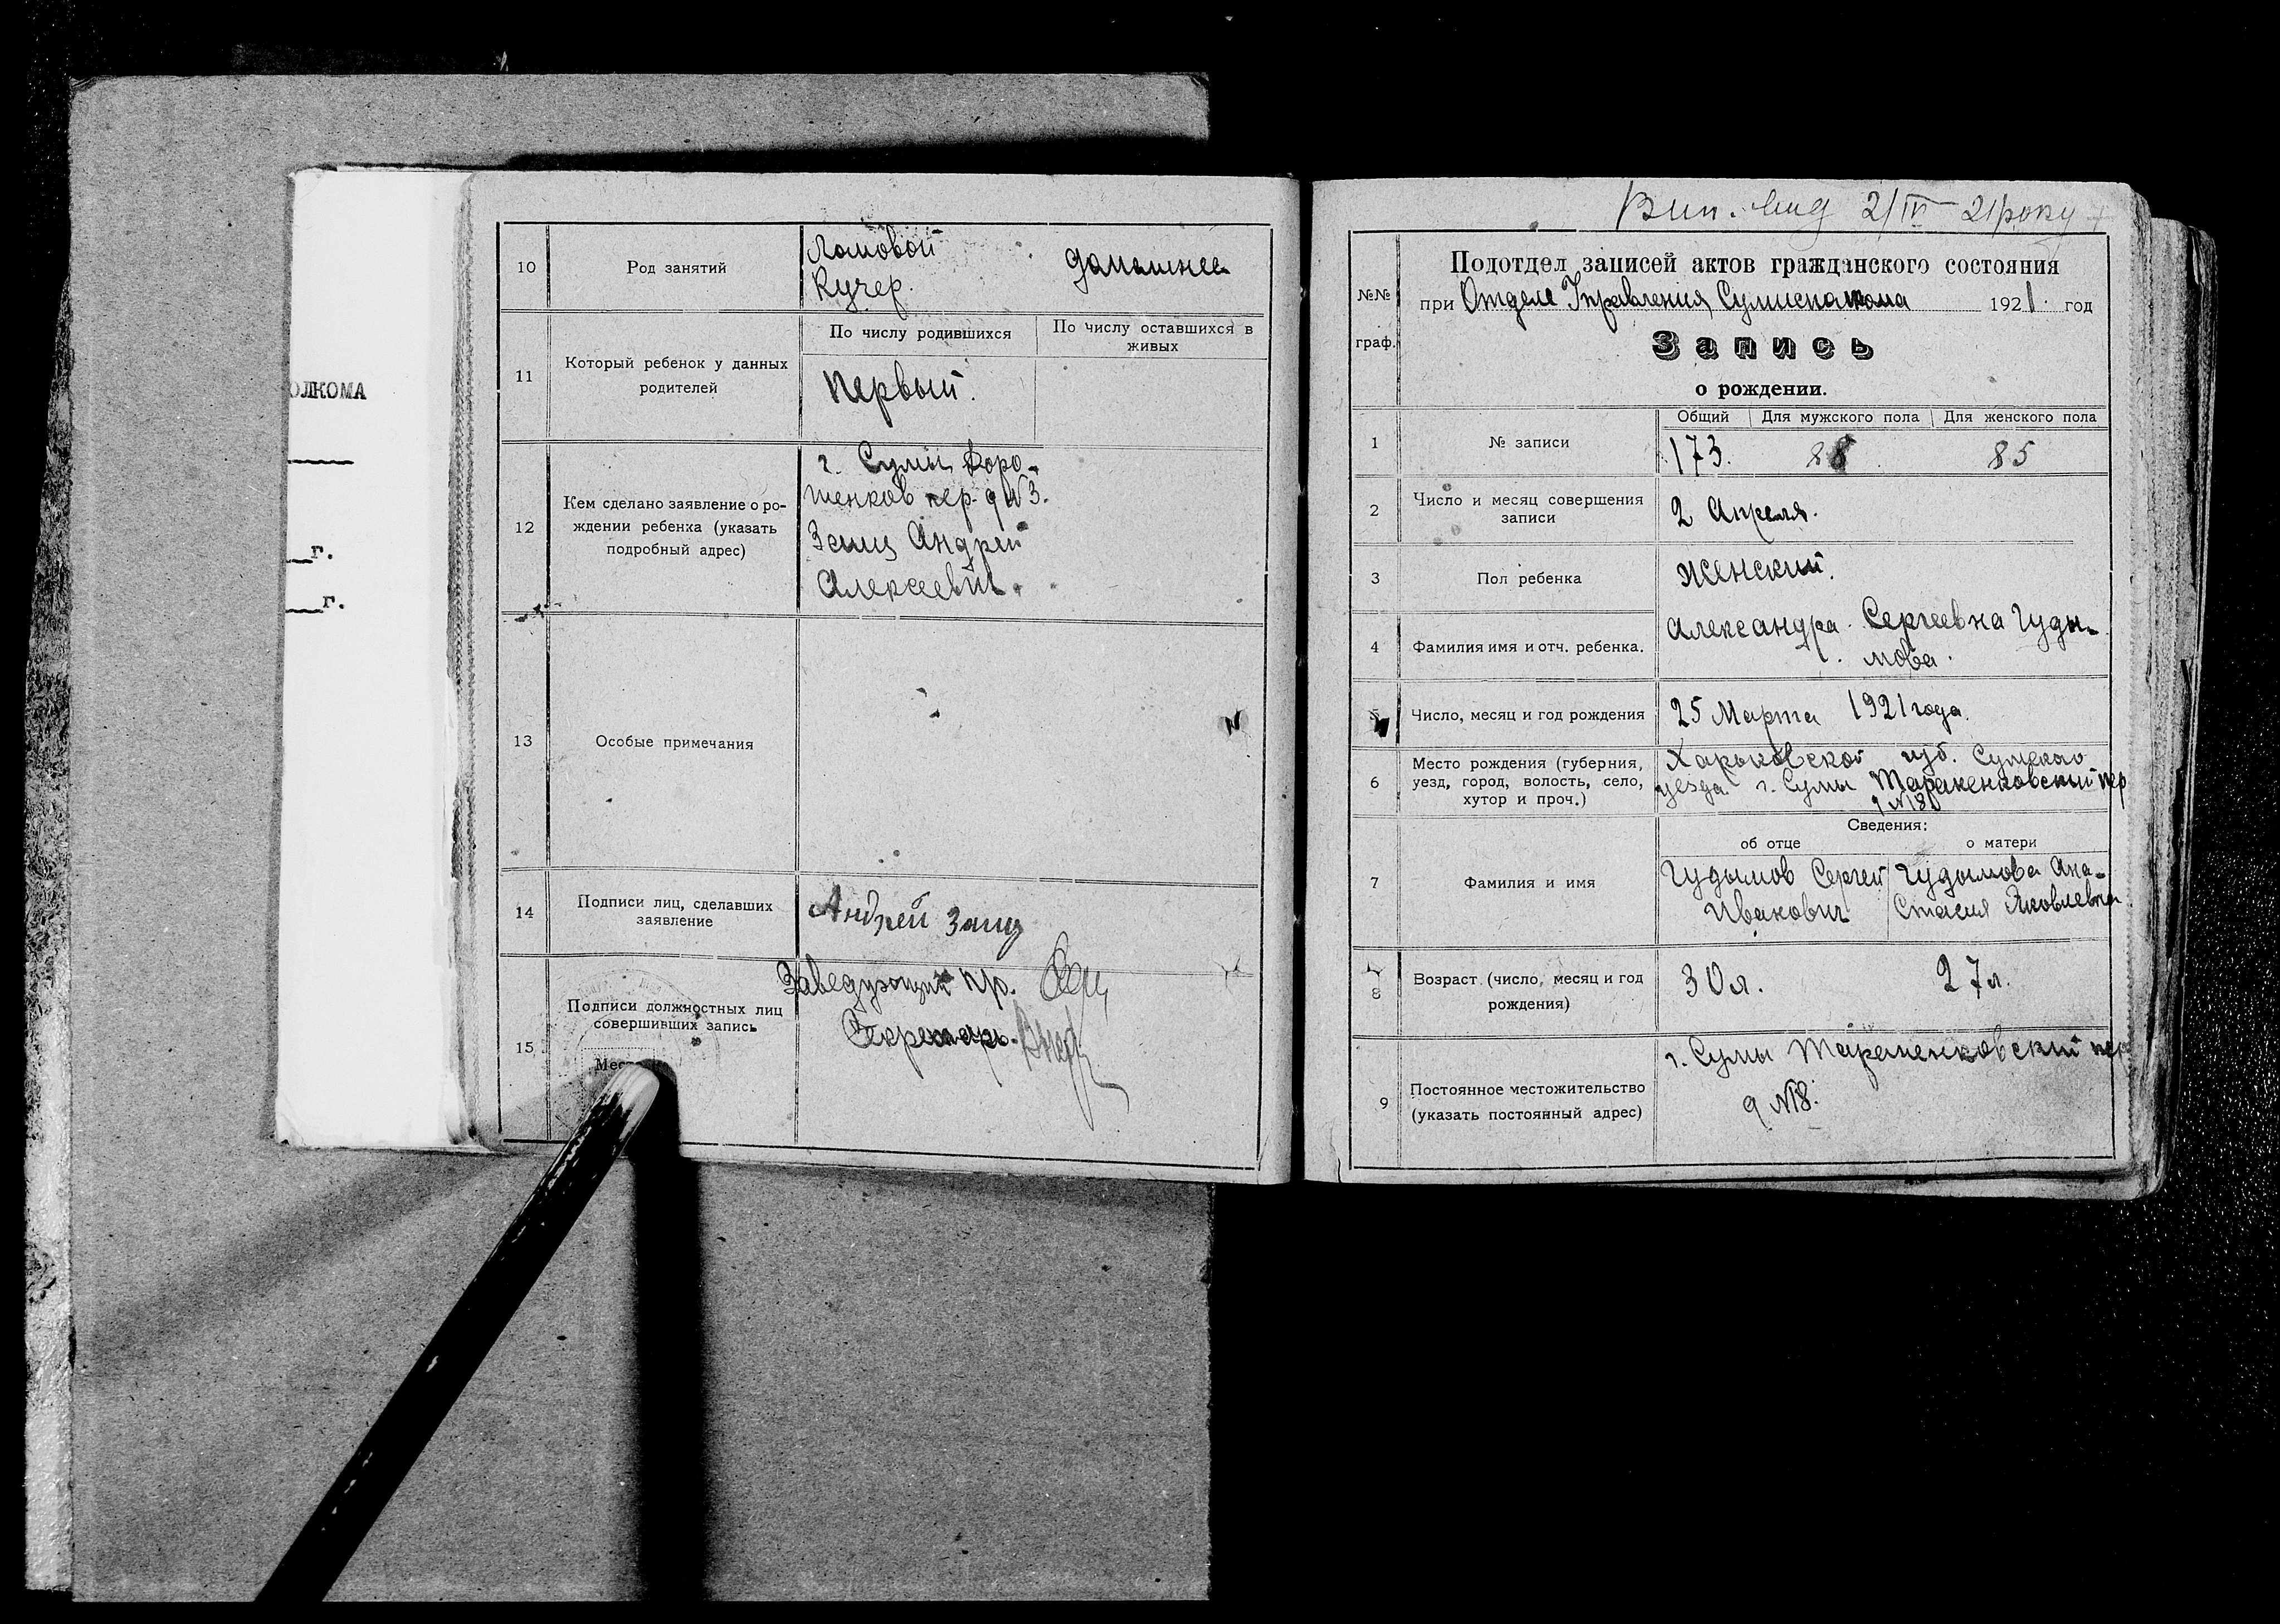 ОЛКОМА
г.
г.
10
Род занятий
Ломовой
Кучер.
домашнее
11
Который ребенок у данных
родителей
По числу родившихся
По числу оставшихся в
живых
первый.
12
Кем сделано заявление о ро-
ждении ребенка (указать
подробный адрес)
г. Сумы, Доро-
шенков пер. д №3.
Заиц Андрей
Алексеевич.
13
Особые примечания
14
Подписи лиц, сделавших
заявление
Андрей Заиц
15
Подписи должностных лиц
совершивших запись
Мес
Заведующий п/о.
Секретарь.
Вип. вид 2/IV 21 року
№№
граф.
Подотдел записей актов гражданского состояния
при Отделе Управления Сумисполкома 1921. год
Запись
о рождении.
1
№ записи
Общий
Для мужского пола
Для женского пола
173.
88
85
2
Число и месяц совершения
записи
2 Апреля.
3
Пол ребенка
Женский.
4
Фамилия имя и отч. ребенка.
Александра Сергеевна Гуды-
мова.
5
Число, месяц и год рождения
25 Марта 1921 года.
6
Место рождения (губерния,
уезд, город, волость, село,
хутор и проч.)
Харьковской губ. Сумского
уезда г. Сумы пер
д №18
Сведения:
об отце
о матери
7
Фамилия и имя
Гудымов Сергей
Иванович
Гудымова Ана-
стасия Яковлевна
8
Возраст (число, месяц и год
рождения)
30 л.
27 л.
9
Постоянное местожительство
(указать постоянный адрес)
г. Сумы пер
д №18.